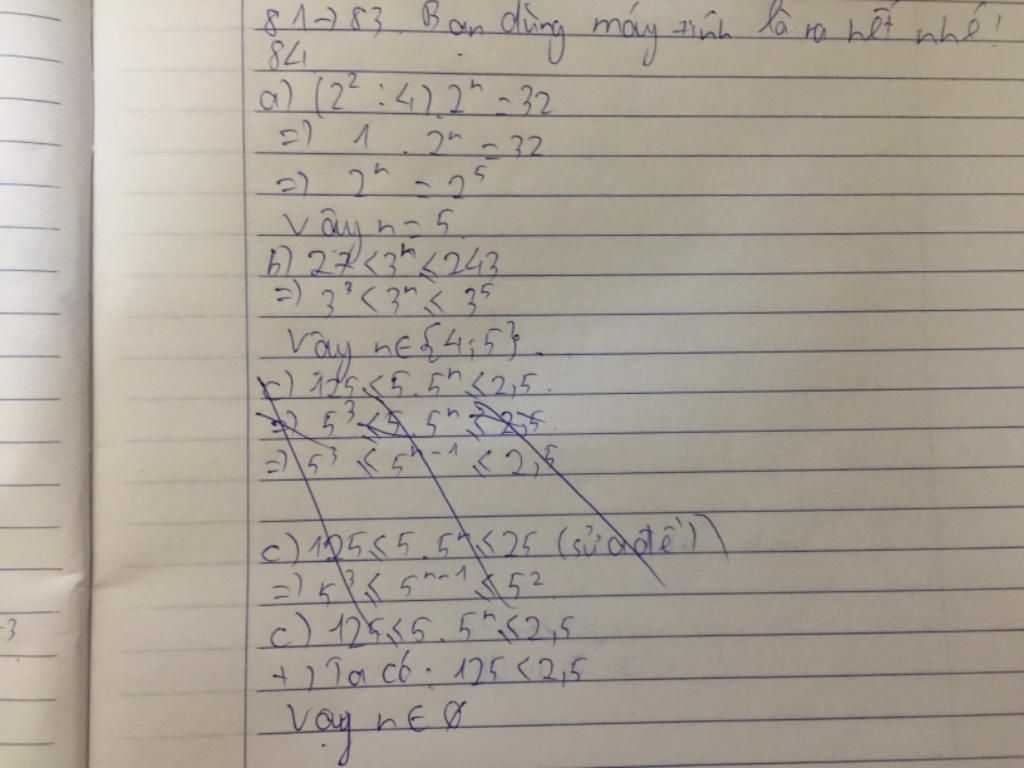 81→83. Bạn dùng máy tính là ra hết nhé!
84
a) (2² : 4) . 2ⁿ = 32
=) 1 . 2ⁿ = 32
=) 2ⁿ = 2⁵
Vậy n = 5
b) 27 < 3ⁿ ≤ 243
=) 3³ < 3ⁿ ≤ 3⁵
Vậy n ∈ {4; 5}.
c) 125 ≤ 5. 5ⁿ ≤ 2,5.
=) 5³ ≤ 5. 5ⁿ ≤ 2,5
=) 5³ ≤ 5ⁿ⁻¹ ≤ 2,5
c) 125 ≤ 5. 5ⁿ ≤ 25 (sửa đề)
=) 5³ ≤ 5ⁿ⁻¹ ≤ 5²
c) 125 ≤ 5. 5ⁿ ≤ 2,5
+) Ta có: 125 < 2,5
Vậy n ∈ Ø
-3